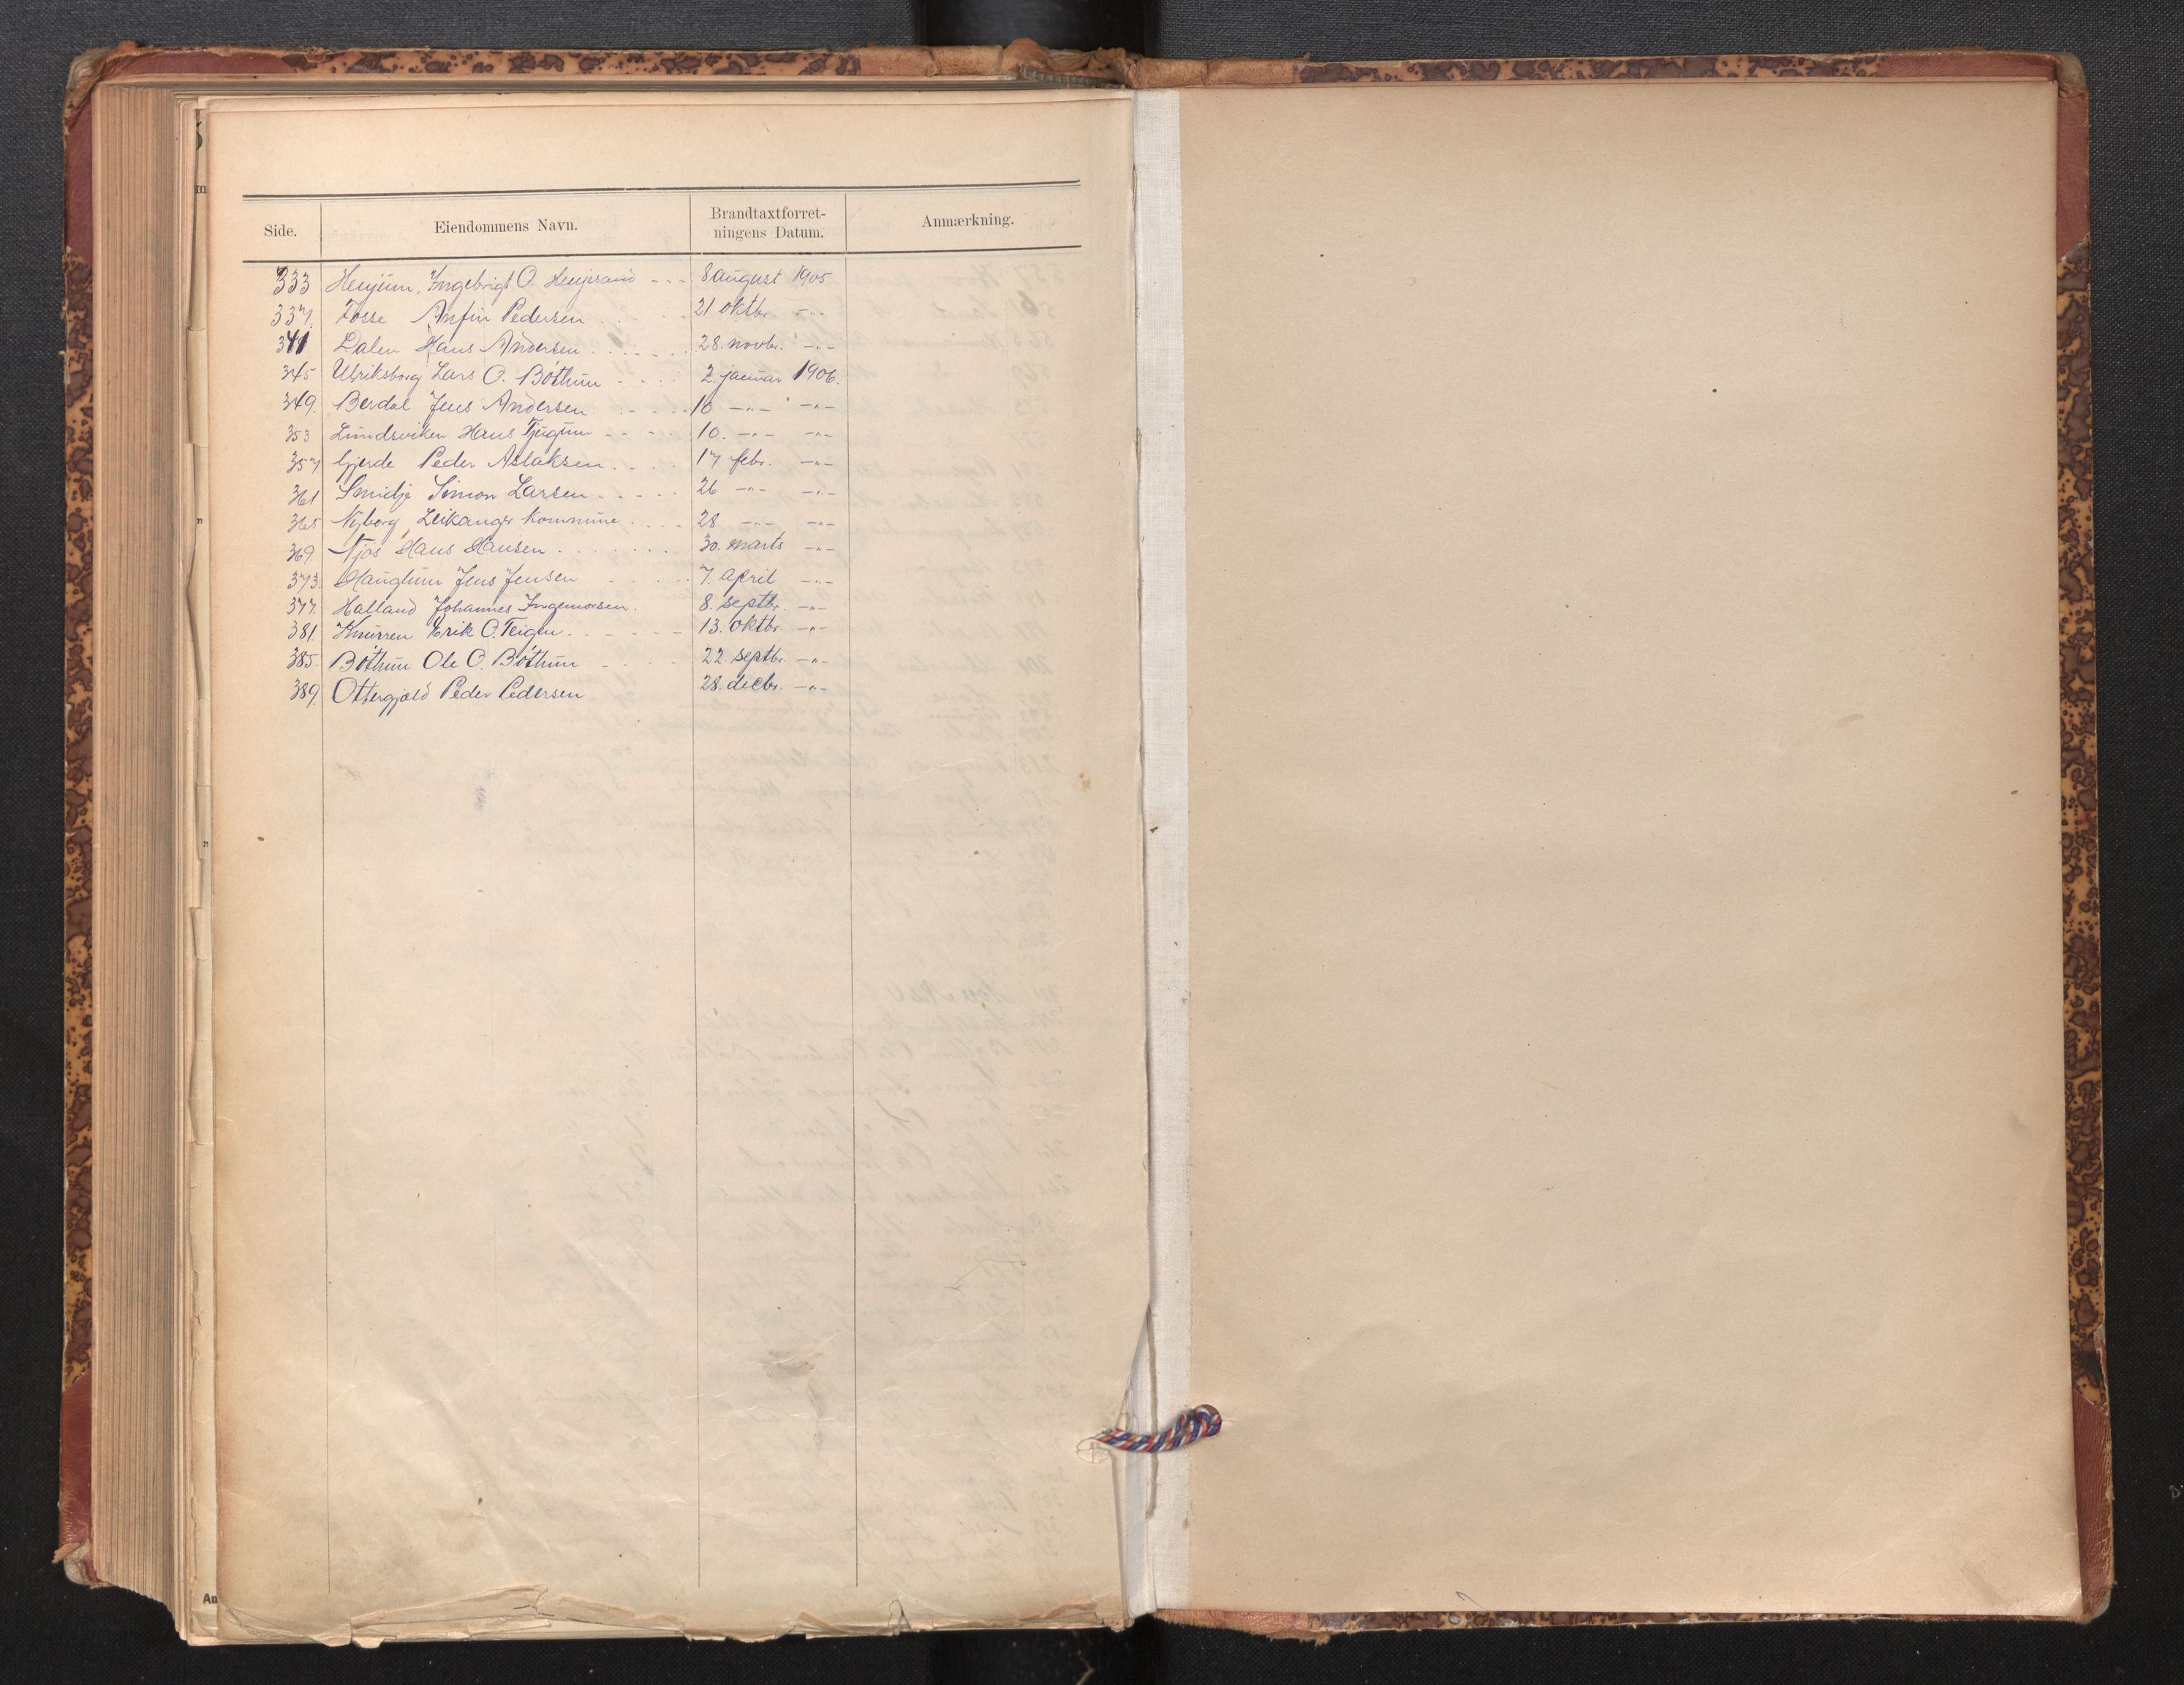 Side. Eiendommens Navn. Brandtaxtforret-ningens Datum. Anmærkning.
333 Henjum, Ingebrigt O. Henjesand - - - 8 august 1905
337. Fosse Anfin Pedersen . . . . 21 oktbr. -"-
341 Dalen Hans Andersen . . . . . . 28. novbr. -"-
345 Ulriksborg Lars O. Bóthun . . . . 2. januar 1906.
349. Berdal Jens Andersen . . . . . 10 -"- -"-
353 Lundsviken Hans Tjugum - - - - 10. -"- -"-
357. Gjerde Peder Aslaksen . . . . 17 febr. -"-
361 Smidje Simon Larsen . . . . . 26 -"- -"-
365 Nyborg, Leikanger kommune . . . . 28 -"- -"-
369. Njøs Hans Hansen . . . . . . . 30. marts -"-
373. Hauglum Jens Jensen . . . . 7. april -"-
377. Halland Johannes Ingemorsen. 8. septbr. -"-
381. Knurren Erik O. Teigen . . . . . . 13. oktbr. -"-
385. Bóthun Ole O. Bóthun . . . . 22. septbr. -"-
389. Ottergjæld Peder Pedersen 28. decbr. -"-